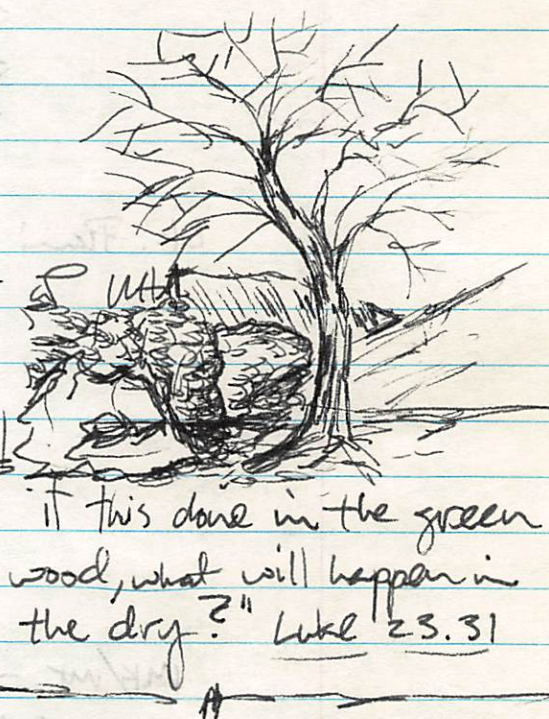 if this done in the green
wood, what will happen in
the dry?" Luke 23.31